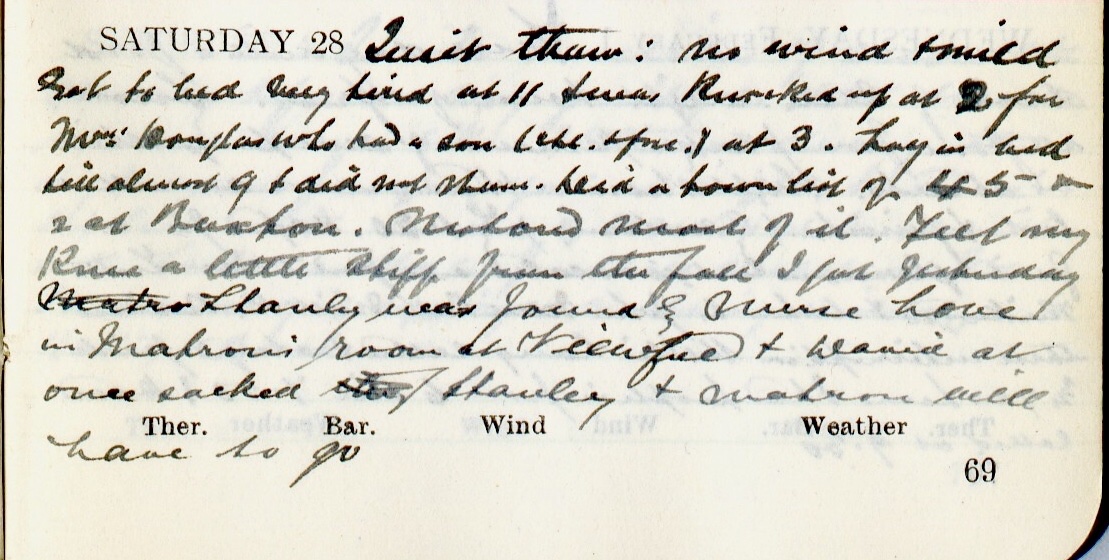 SATURDAY 28 Quiet thaw: no wind & mild
Got to bed very tired at 11 & was Knocked up at 2 for
Mrs Douglas who had a son at 3. Lay in bed
till almost 9 & did not Had a town list of 45
2 at Buxton. Motored most of it. Feel my
Knee a little stiff from the fall I got yesterday
Stanley was found Nurse Love
in Matron's room at Viewfield & David at
once sacked Stanley & Matron will
Ther. Bar. Wind Weather
have to go
69